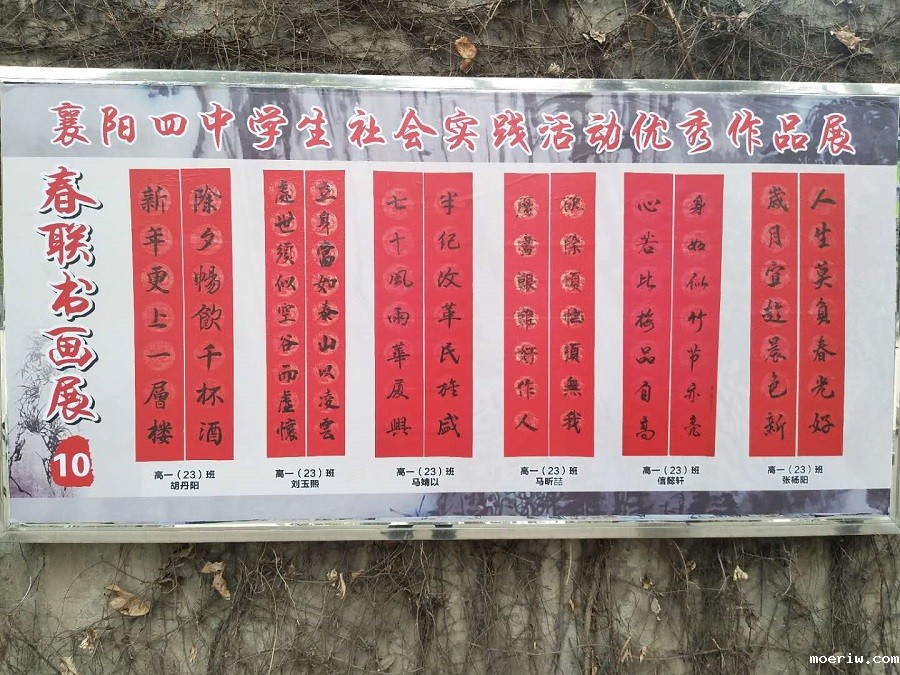 襄阳四中学生社会实践活动优秀作品展
春联书画展
10
除夕暢飲千杯酒
新年更上一層樓
高一（23）班
胡丹阳
立身當如泰山以凌雲
處世須似空谷而虛懷
高一（23）班
刘玉熙
半纪改革民族盛
七十風雨華厦興
高一（23）班
马婧以
欲除煩惱須無我
高一（23）班
马昕喆
身如似竹节亦亮
心若比梅品自高
高一（23）班
信懿轩
人生莫負春光好
歲月宜趁晨色新
高一（23）班
张杨阳
moeriw.com